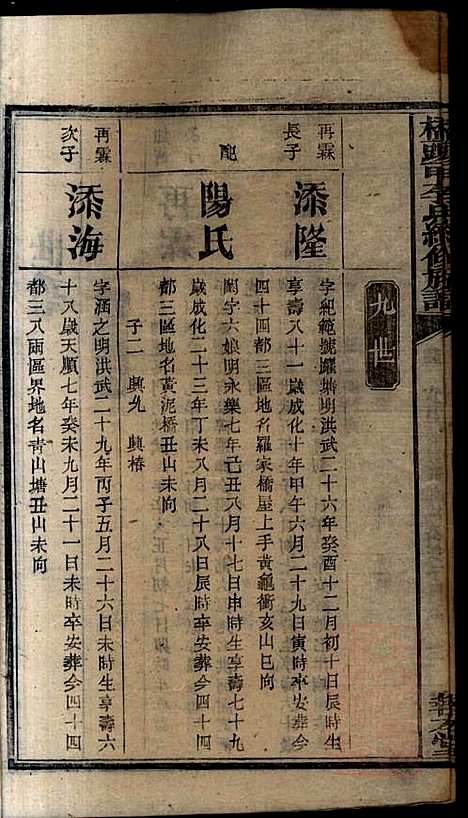 橋頭甲李氏續修族譜
九世
再霖
長子
添隆
字紀範號耀塘明洪武二十六年癸酉十二月初十日辰時生
享壽八十一歲成化十年甲午六月二十九日寅時卒安葬今
四十四都三區地名羅家橋屋上手黃龜衝亥山巳向
配
陽氏
閨字六娘明永樂七年己丑八月十七日申時生享壽七十九
歲成化二十三年丁未八月二十八日辰時卒安葬今四十四
都三區地名黃泥橋丑山未向
子二 興允 興椿
再霖
次子
添海
字涵之明洪武二十九年丙子五月二十六日未時生享壽六
十八歲天順七年癸未九月二十一日未時卒安葬今四十四
都三八兩區界地名靑山塘丑山未向